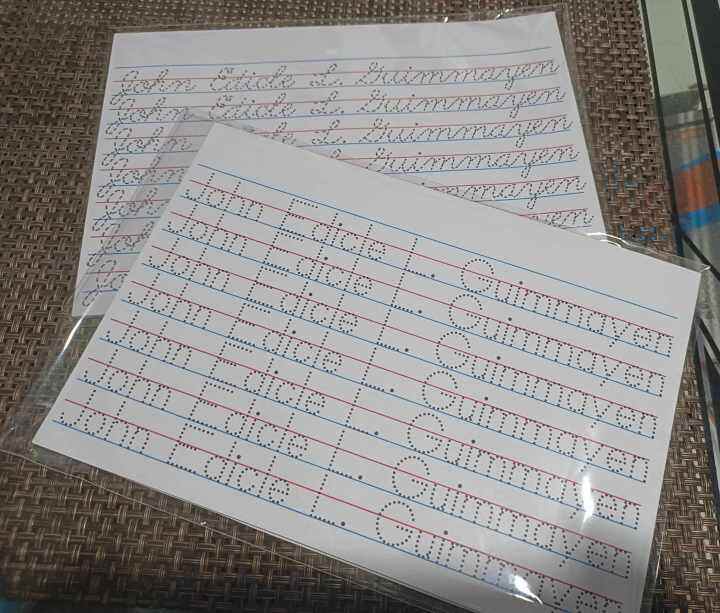 John Edicle L. Guimmayen
John Edicle L. Guimmayen
John L. Guimmayen
John Guimmayen
John mayen
John yen
John
John Edicle L. Guimmayen
John Edicle L. Guimmayen
John Edicle L. Guimmayen
John Edicle L. Guimmayen
John Edicle L. Guimmayen
John Edicle L. Guimmayen
John Edicle L. Guimmaye